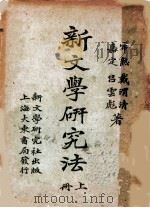 常熟 戴渭清
嘉定 呂雲彪
著
新文學研究法
上冊
新文學研究社出版
上海大東書局發行